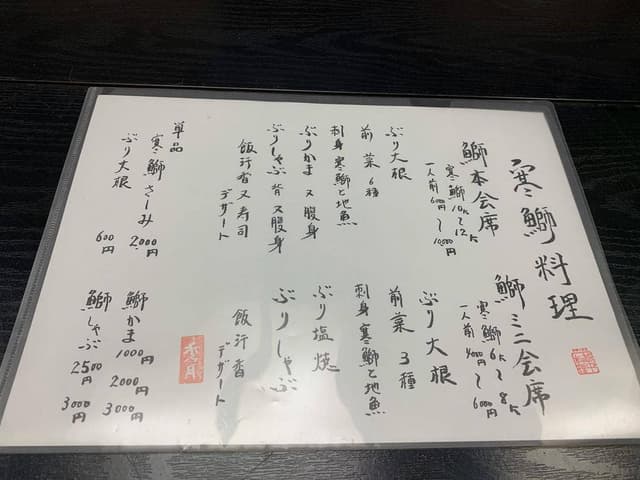 寒鰤料理
鰤本会席
寒鰤10k〜12k
一人前 6000円〜10,000円
ぶり大根
前菜6種
刺身 寒鰤と地魚
ぶりかま又腹身
ぶりしゃぶ 背又腹身
飯汁香又寿司
デザート
鰤ミニ会席
寒鰤6k〜8k
一人前 4000円〜6000円
ぶり大根
前菜3種
刺身 寒鰤と地魚
ぶり塩焼
ぶりしゃぶ
飯汁香
デザート
単品
寒鰤さしみ 2000円
ぶり大根 600円
鰤かま 1000円 2000円 3000円
鰤しゃぶ 2500円 3000円